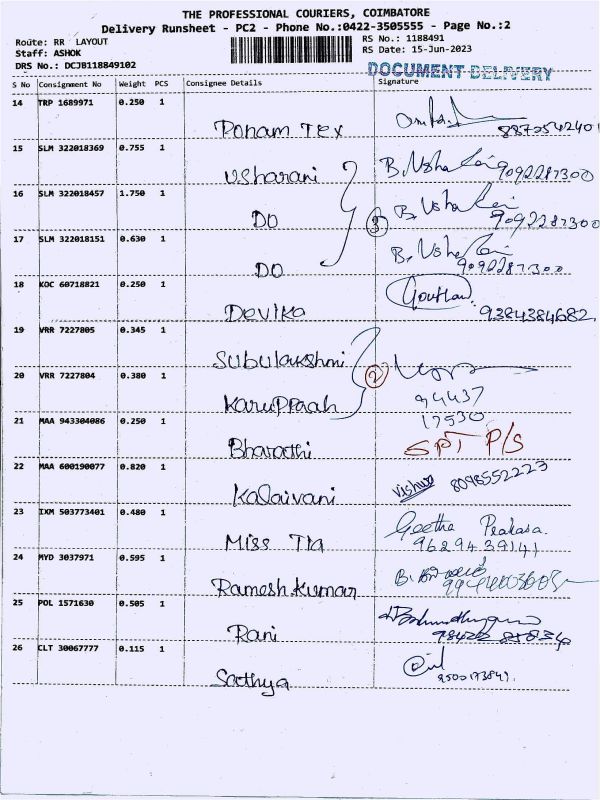 THE PROFESSIONAL COURIERS, COIMBATORE
Delivery Runsheet - PC2 - Phone No.:0422-3505555 - Page No.:2
Route: RR LAYOUT
RS No.: 1188491
Staff: ASHOK
RS Date: 15-Jun-2023
DRS No.: DCJB118849102
DOCUMENT DELIVERY
S No Consignment No Weight PCS Consignee Details Signature
14 TRP 1689971 0.250 1
Ponam Tex
15 SLM 322018369 0.755 1
Usharani B. Usha Rani 9092287300
16 SLM 322018457 1.750 1
DO ③ B. Usha Rani 9092287300
17 SLM 322018151 0.630 1
DO B. Usha Rani 9092287300
18 KOC 60718821 0.250 1
Devika Goutham 9384384682
19 VRR 7227805 0.345 1
Subulakshmi
20 VRR 7227804 0.380 1
②
Karuppaah 94437
17530
21 MAA 943304086 0.250 1
Bharathi SPT P/S
22 MAA 600190077 0.820 1
Kalaivani Vishwa 8098552223
23 IXM 503773401 0.480 1
Geetha Prakasa.
Miss Tta 9629439141
24 MYD 3037971 0.595 1
Ramesh Kumar
25 POL 1571630 0.505 1
Rani
26 CLT 30067777 0.115 1
Sathya